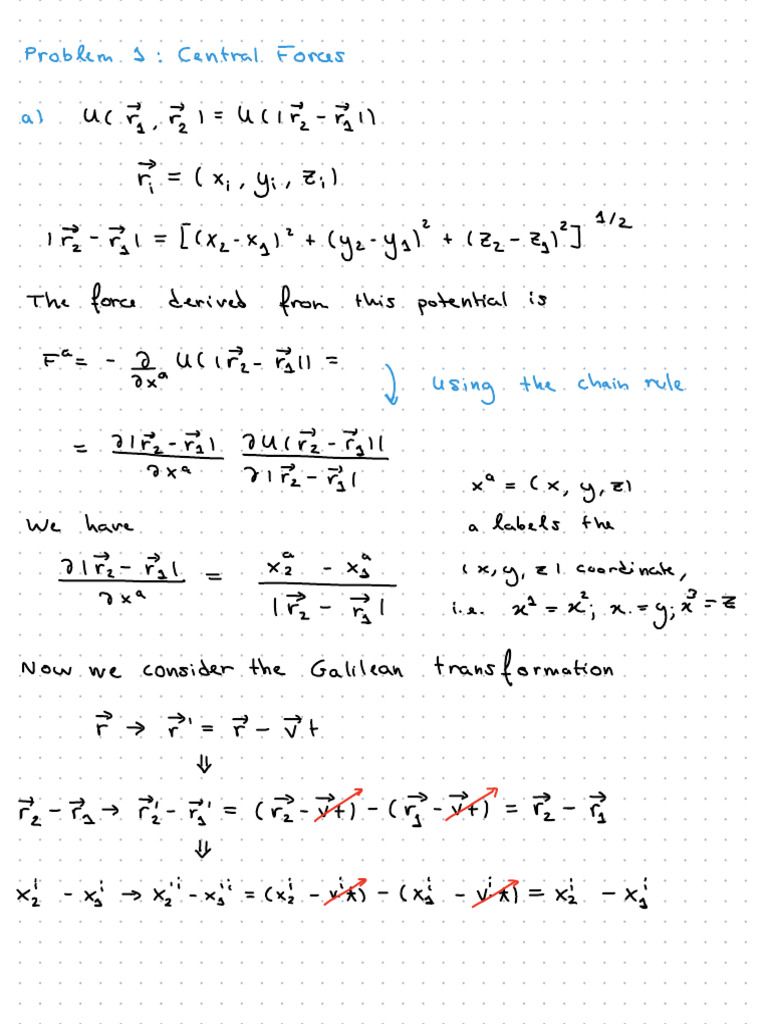 Problem 1 : Central Forces
a) U( r⃗₁, r⃗₂ ) = U(|r⃗₂ - r⃗₁|)
r⃗ᵢ = ( xᵢ, yᵢ, zᵢ)
|r⃗₂ - r⃗₁| = [(x₂-x₁)² + (y₂-y₁)² + (z₂-z₁)²]^1/2
The force derived from this potential is
Fᵃ = - ∂/∂xᵃ U(|r⃗₂ - r⃗₁|) =
using the chain rule
= ∂|r⃗₂ - r⃗₁|/∂xᵃ ∂U(r⃗₂ - r⃗₁)|/∂|r⃗₂ - r⃗₁|
xᵃ = (x, y, z)
We have
a labels the
∂|r⃗₂ - r⃗₁|/∂xᵃ = x₂ᵃ - x₁ᵃ/|r⃗₂ - r⃗₁|
(x, y, z) coordinate,
i.e. x¹ = x²; x. = y; x³ = z
Now we consider the Galilean transformation
r⃗ → r⃗' = r⃗ - v⃗t
⇓
r⃗₂ - r⃗₁ → r⃗₂' - r⃗₁' = (r⃗₂ - v⃗t) - (r⃗₁ - v⃗t) = r⃗₂ - r⃗₁
⇓
x₂ⁱ - x₁ⁱ → x₂'ⁱ - x₁'ⁱ = (x₂ⁱ - vⁱt) - (x₁ⁱ - vⁱt) = x₂ⁱ - x₁ⁱ